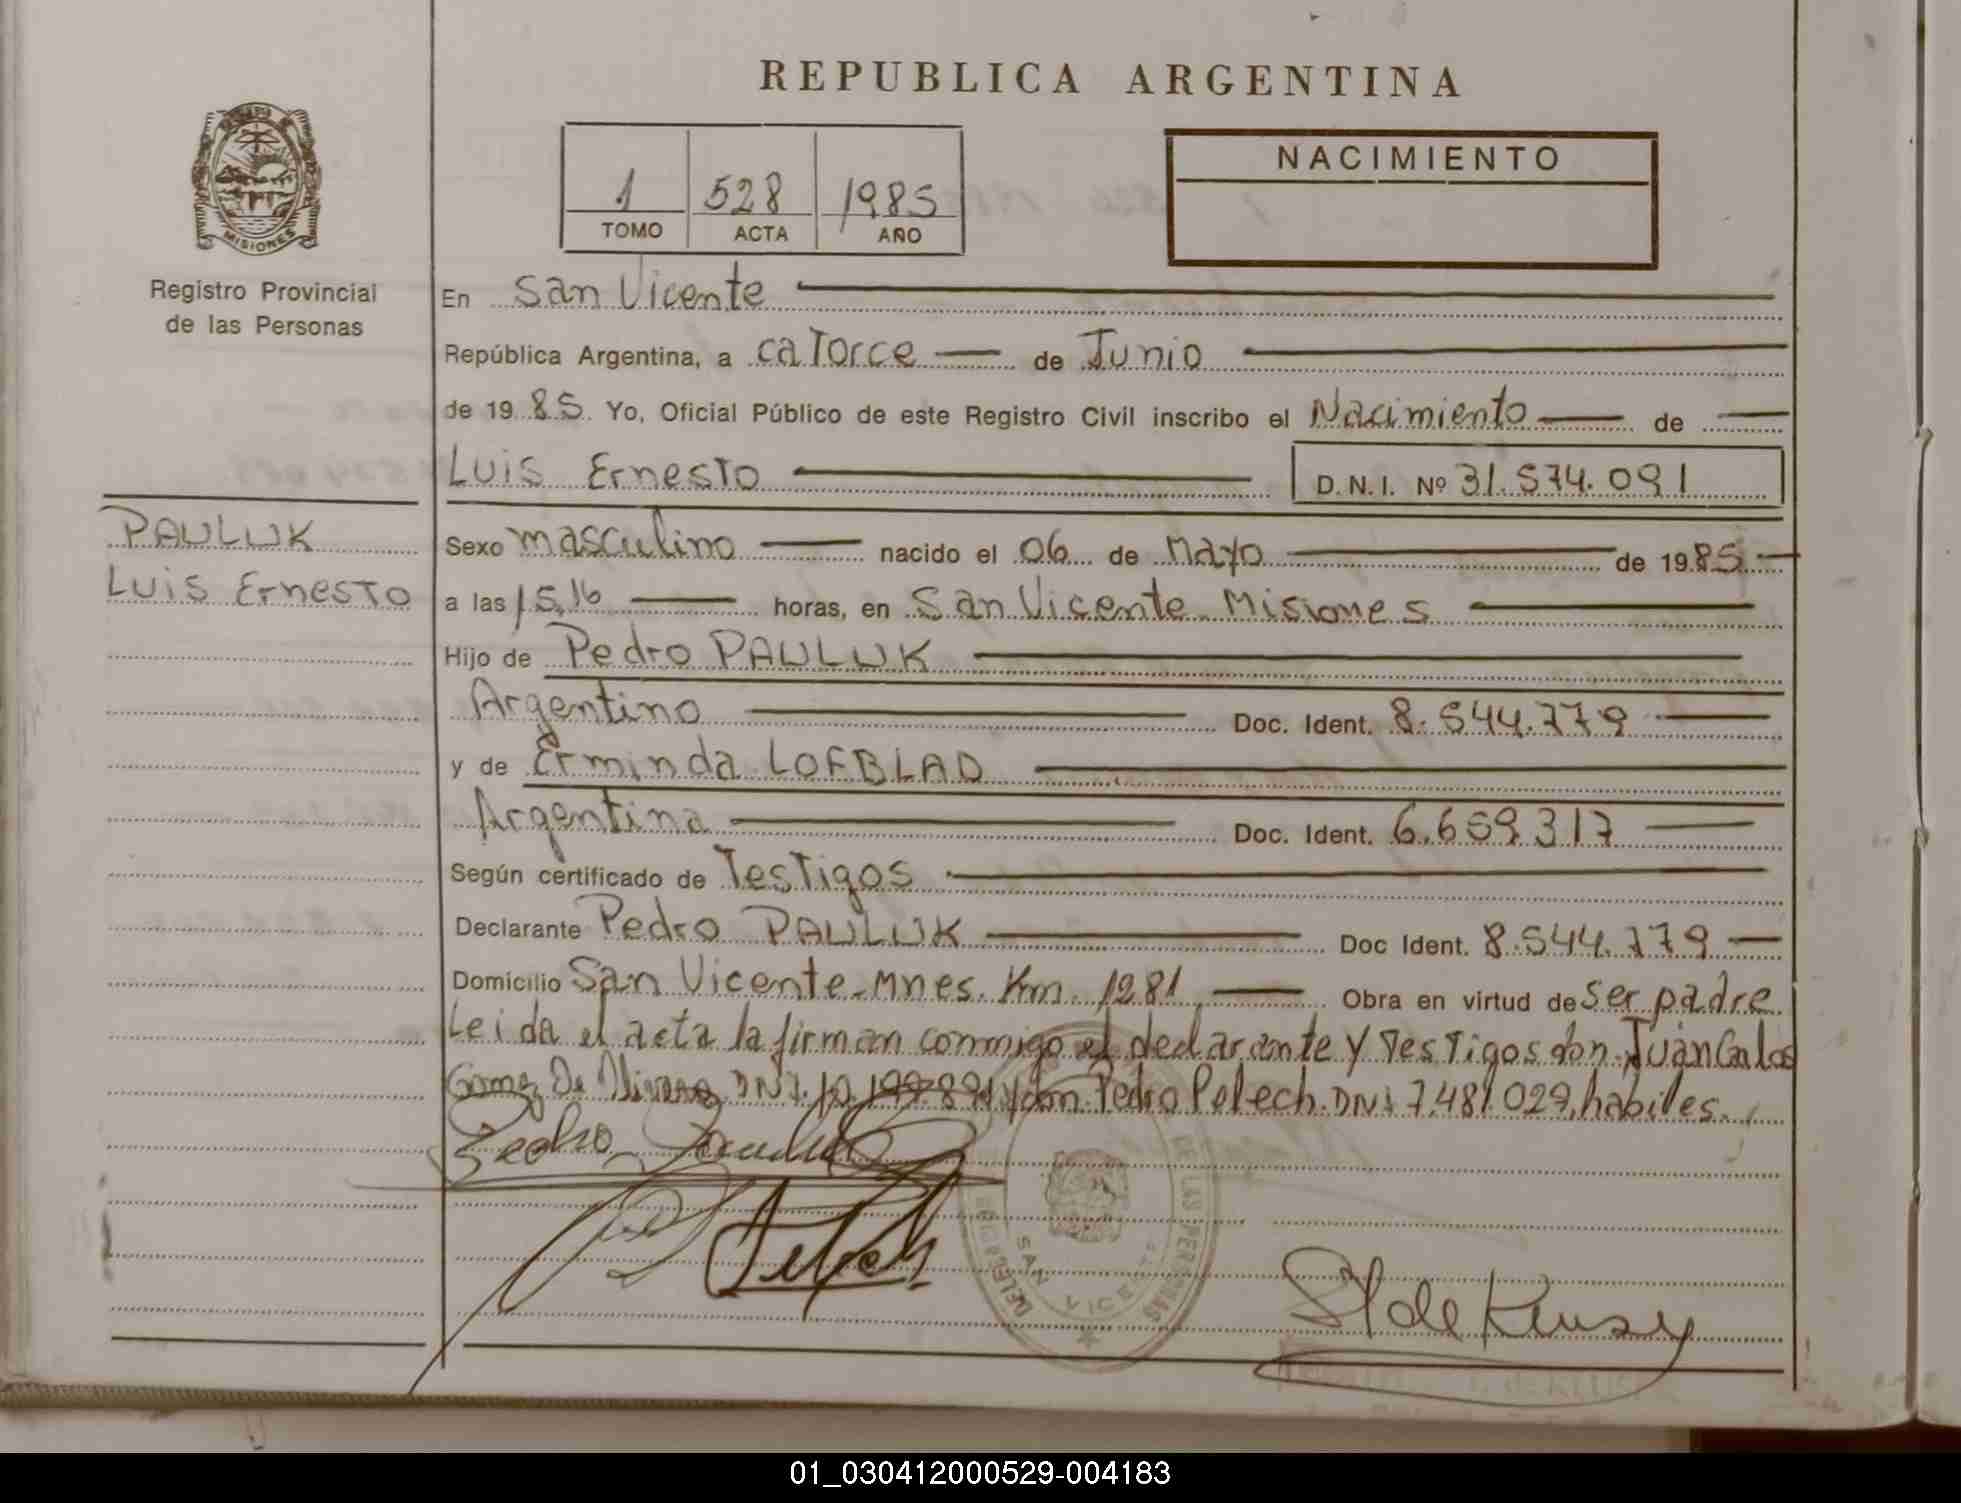 REPUBLICA ARGENTINA
MISIONES
Registro Provincial
de las Personas
1 528 1985
TOMO ACTA AÑO
NACIMIENTO
En San Vicente
República Argentina, a catorce de Junio
de 1985 Yo, Oficial Público de este Registro Civil inscribo el Nacimiento de
Luis Ernesto D.N.I. Nº 31.574.091
PAULUK
Luis Ernesto
Sexo masculino nacido el 06 de Mayo de 1985
a las 15,16 horas, en San Vicente Misiones
Hijo de Pedro PAULUK
Argentino Doc. Ident. 8.544.779
y de Erminda LOFBLAD
Argentina Doc. Ident. 6.659.317
Según certificado de Testigos
Declarante Pedro PAULUK Doc Ident. 8.544.779
Domicilio San Vicente-Mnes. Km. 1281 Obra en virtud de ser padre
Leida el acta la firman conmigo el declarante y Testigos don Juan Carlos
Gomez De Olivera DNI. y don Pedro Pelech. DNI 7.481.029, habiles.
Pedro Pauluk
Pelech
DE LAS PERSONAS
SAN VICENTE
de Klusy
01_030412000529-004183